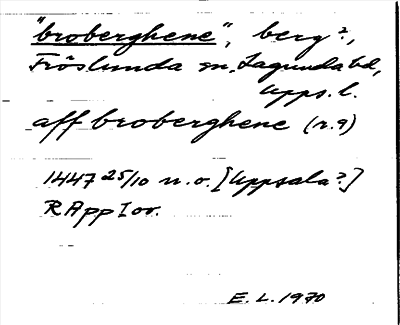 "broberghene", berg?,
Fröslunda sn, Lagunda hd,
Upps. l.
aff broberghene (r.9)
1447 25/10 u.o. [Uppsala?]
RAppI or.
E.L. 1970